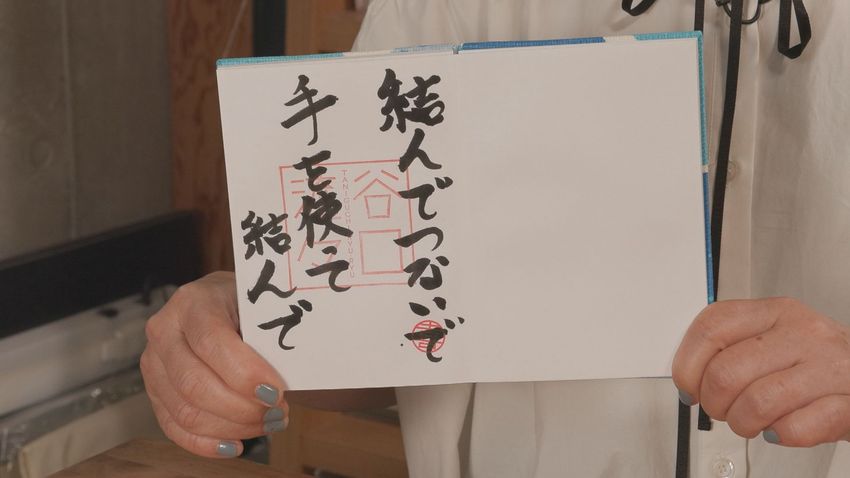 結んでつないで
手を使って
結んで
谷口
TANIGUCHI RYURYU